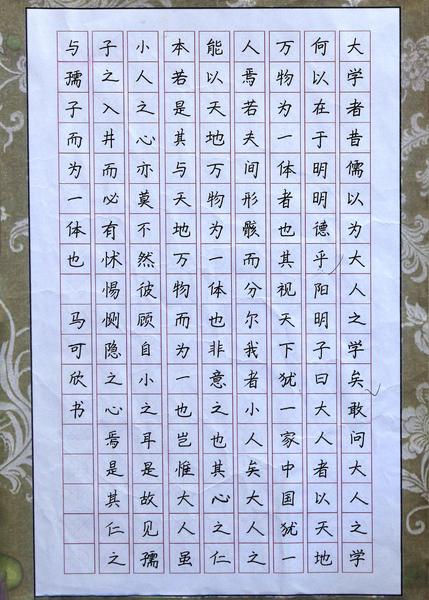 大学者昔儒以为大人之学矣敢问大人之学
何以在于明明德乎阳明子曰大人者以天地
万物为一体者也其视天下犹一家中国犹一
人焉若夫间形骸而分尔我者小人矣大人之
能以天地万物为一体也非意之也其心之仁
本若是其与天地万物而为一也岂惟大人虽
小人之心亦莫不然彼顾自小之耳是故见孺
子之入井而必有怵惕恻隐之心焉是其仁之
与孺子而为一体也 马可欣书